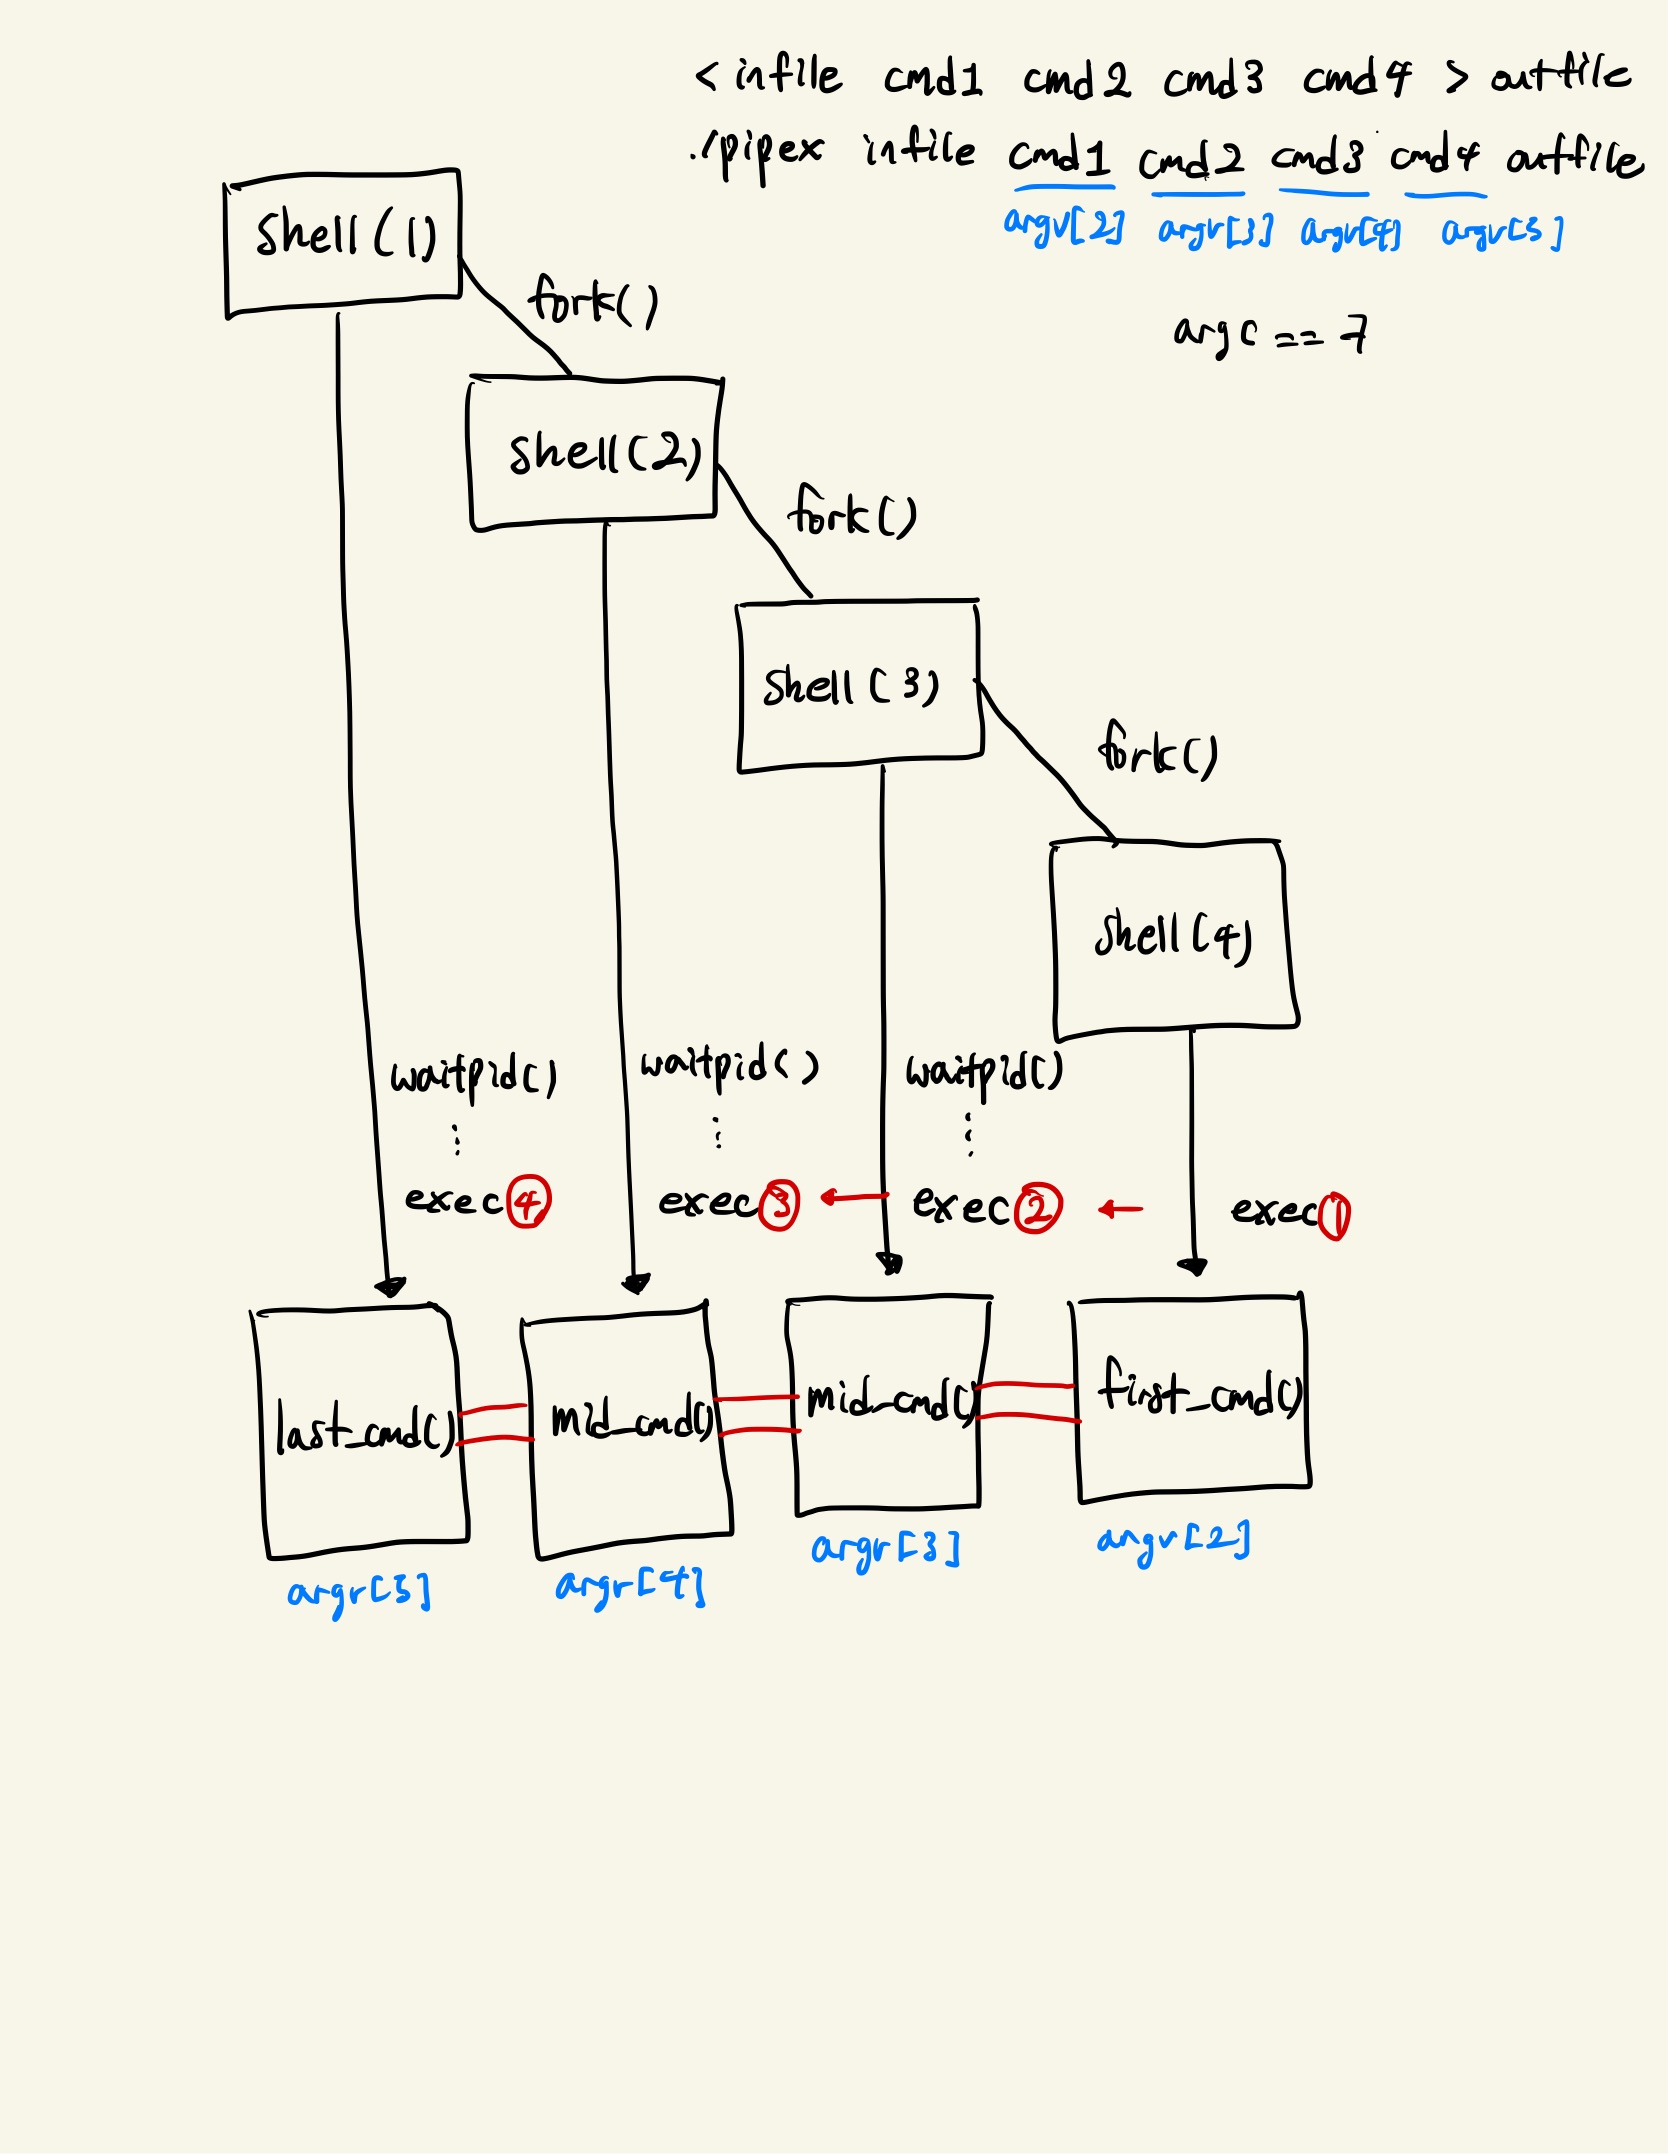 < infile cmd1 cmd2 cmd3 cmd4 > outfile
./pipex infile cmd1 cmd2 cmd3 cmd4 outfile
argv[2] argv[3] argv[4] argv[5]
argc == 7
shell(1)
fork()
shell(2)
fork()
shell(3)
fork()
shell(4)
waitpid() waitpid() waitpid()
exec④ exec③ ← exec② ← exec①
last_cmd() mid_cmd() mid_cmd() first_cmd()
argv[5] argv[4] argv[3] argv[2]